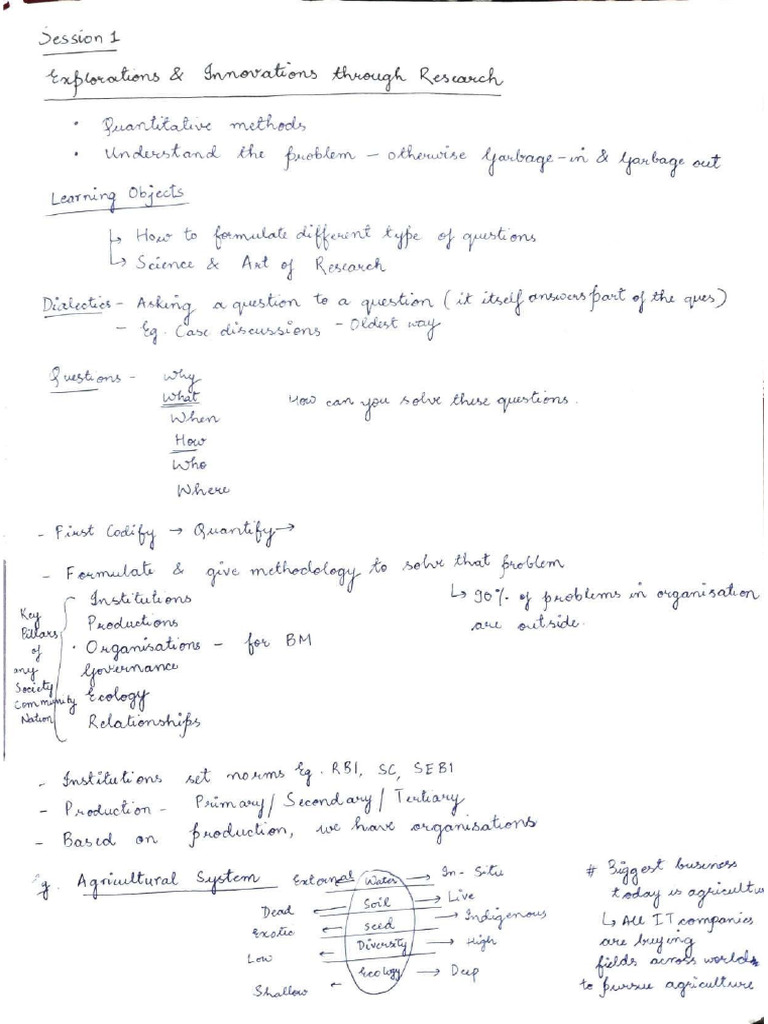 Session 1
Explorations & Innovations through Research
• Quantitative methods
• Understand the problem – otherwise Garbage-in & Garbage out
Learning Objects
↳ How to formulate different type of questions
↳ Science & Art of Research
Dialectics – Asking a question to a question (it itself answers part of the ques)
– Eg. Case discussions – Oldest way
Questions – Why
What
How can you solve these questions.
When
How
Who
Where
- First Codify → Quantify →
- Formulate & give methodology to solve that problem
↳ 90% of problems in organisation
are outside.
Key
Pillars
of
any
Society
Community
Nation
Institutions
Productions
• Organisations – for BM
Governance
Ecology
Relationships
- Institutions set norms Eg. RBI, SC, SEBI
- Production – Primary/ Secondary/ Tertiary
- Based on production, we have organisations
Eg. Agricultural System
External Water → In-Situ
Dead ← Soil → Live
Exotic ← seed → Indigenous
Low ← Diversity → High
Shallow ← Ecology → Deep
# Biggest business
today is agricultu
↳ All IT companies
are buying
fields across world
to pursue agriculture